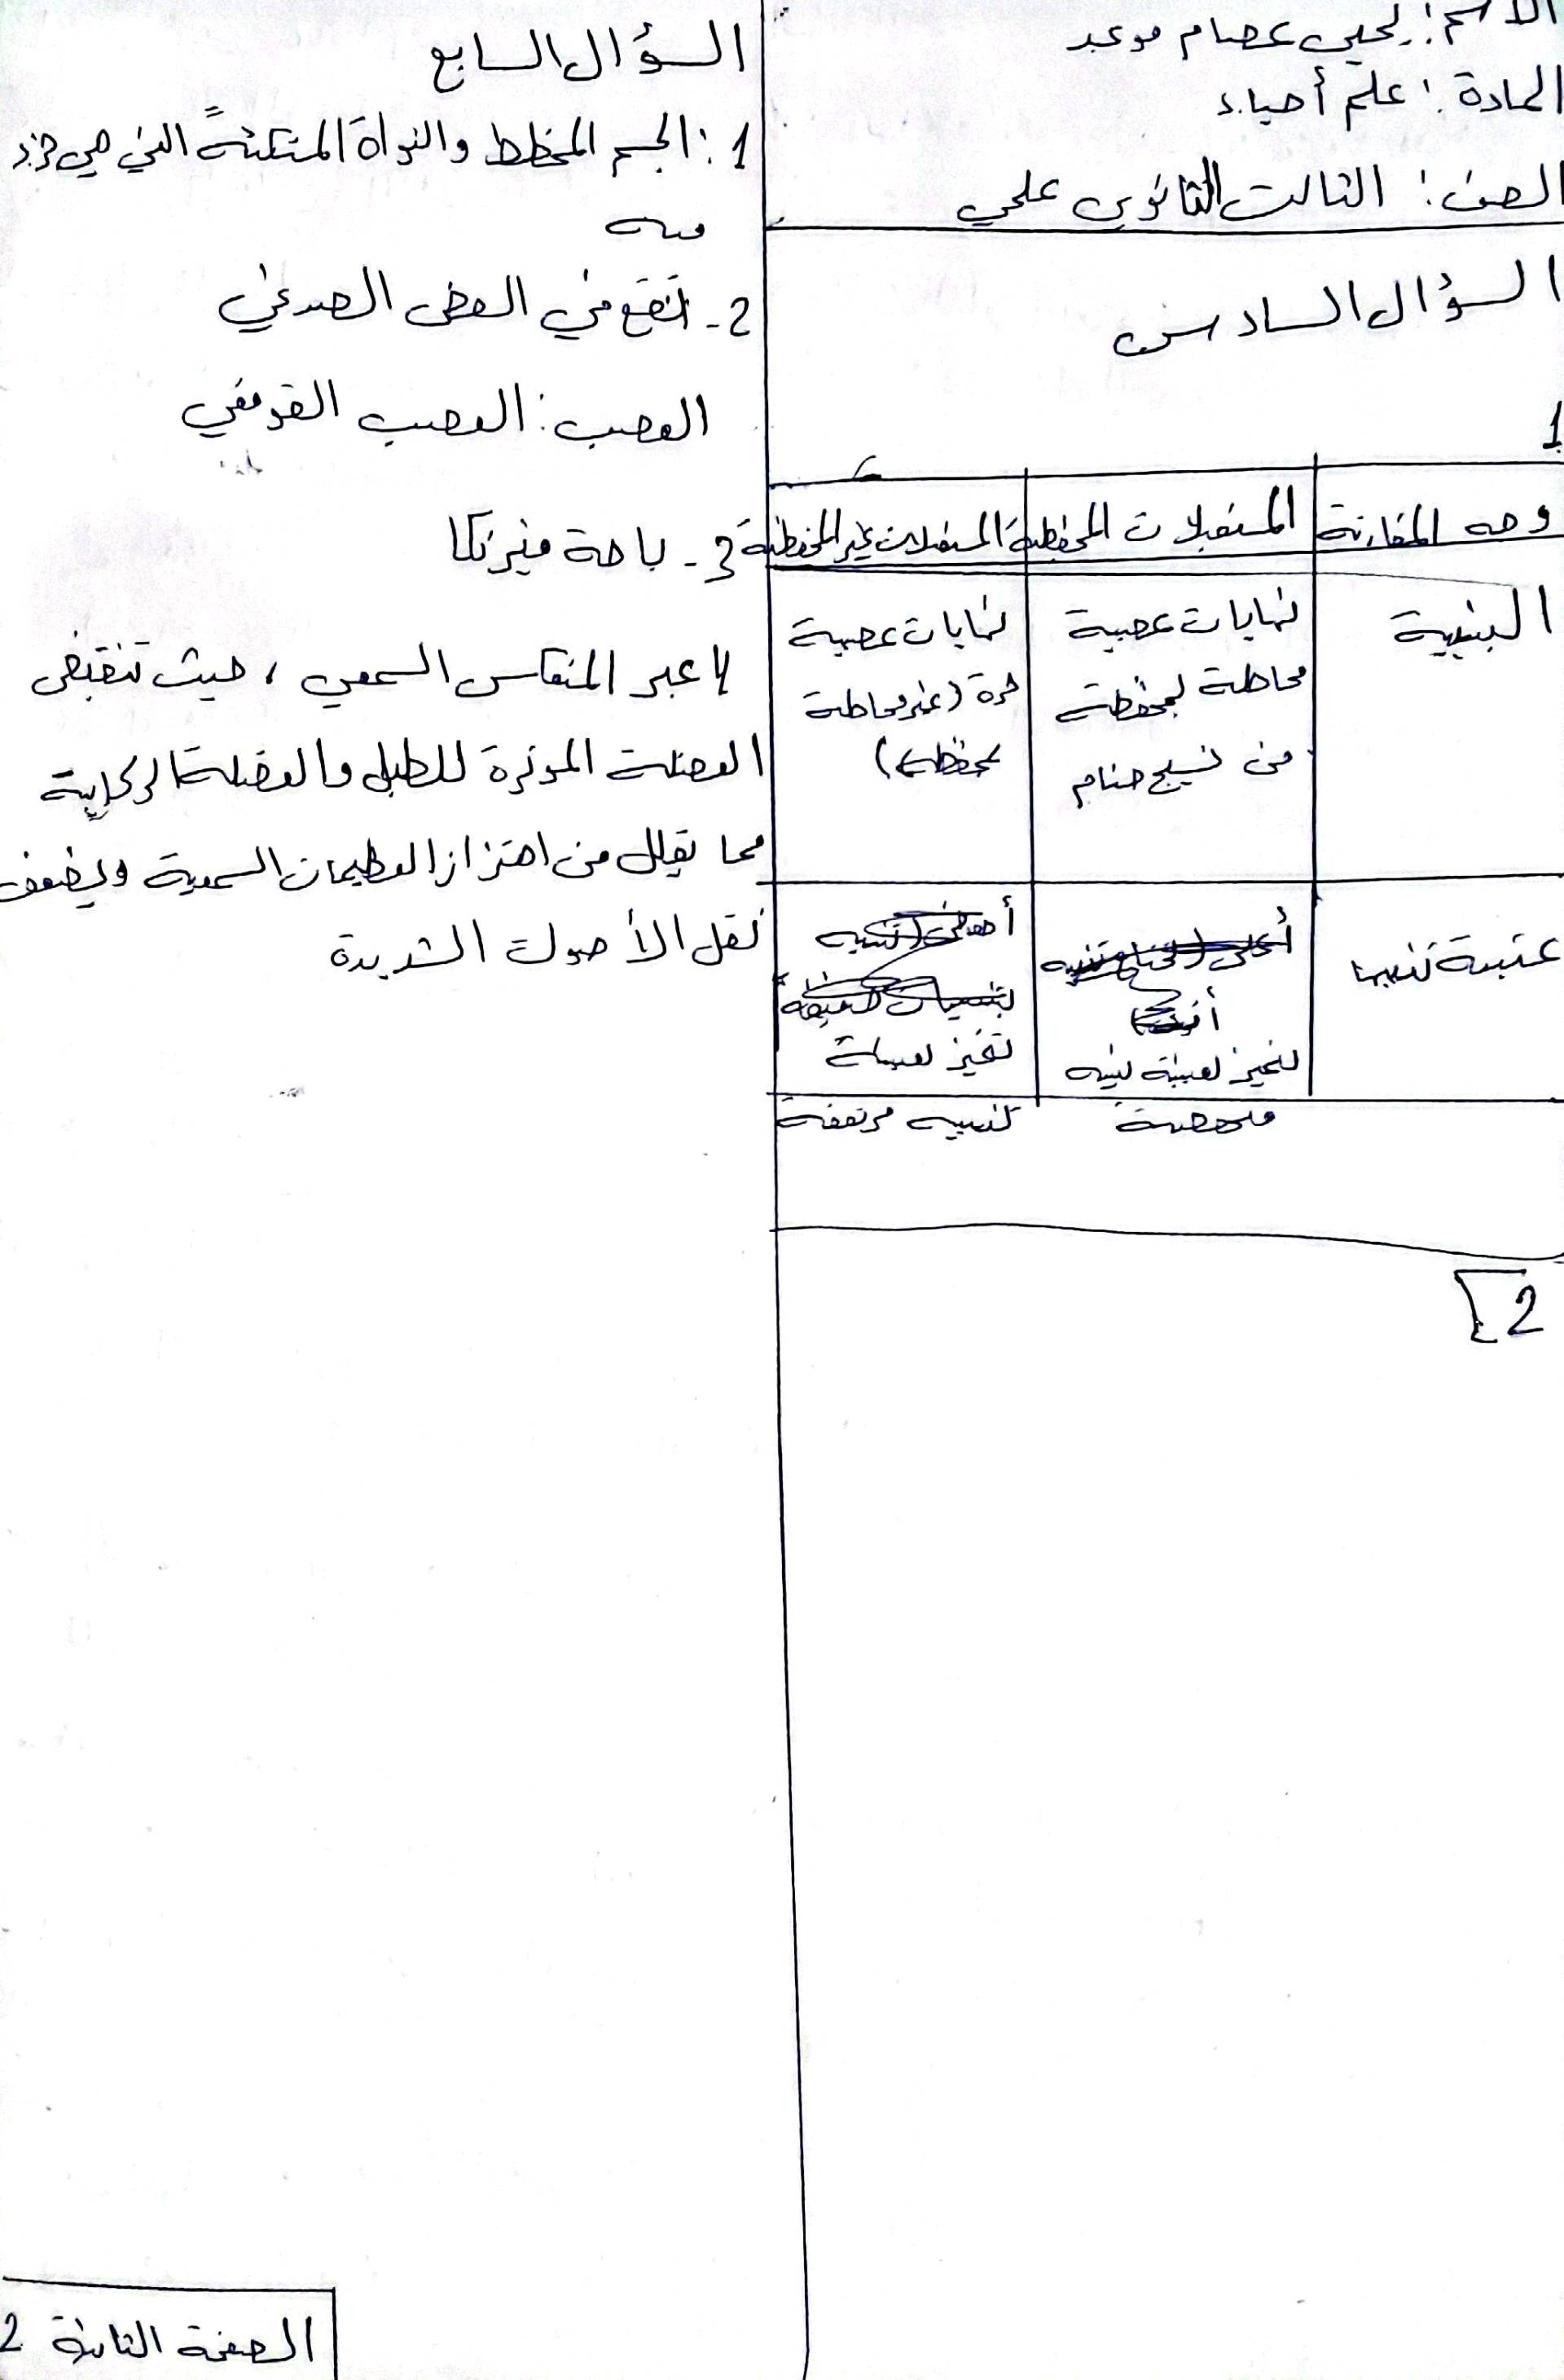 الاسم: يحيى عصام موعد
المادة: علم أحياء
الصف: الثالث الثانوي علمي
السؤال السادس
1
وجه المقارنة | المستقبلات المحفظية | المستقبلات غير المحفظية
البنية | نهايات عصبية محاطة بمحفظة من نسيج ضام | نهايات عصبية حرة (غير محاطة بمحفظة)
عتبة تنبيهها | تتميز بعتبة تنبيه منخفضة | تتميز بعتبة تنبيه مرتفعة
2
السؤال السابع
1: الجسم المخطط والنواة المتكئة التي هي جزء
منه
2- تقع في الفص الصدغي
العصب: القوقعي
3- باحة فيرنكا
4 عبر المنعكس السمعي، حيث تنقبض
العضلة الموترة للطبل والعضلة الركابية
مما يقلل من اهتزاز العظيمات السمعية ويضعف
نقل الأصوات الشديدة
الصفحة الثانية 2